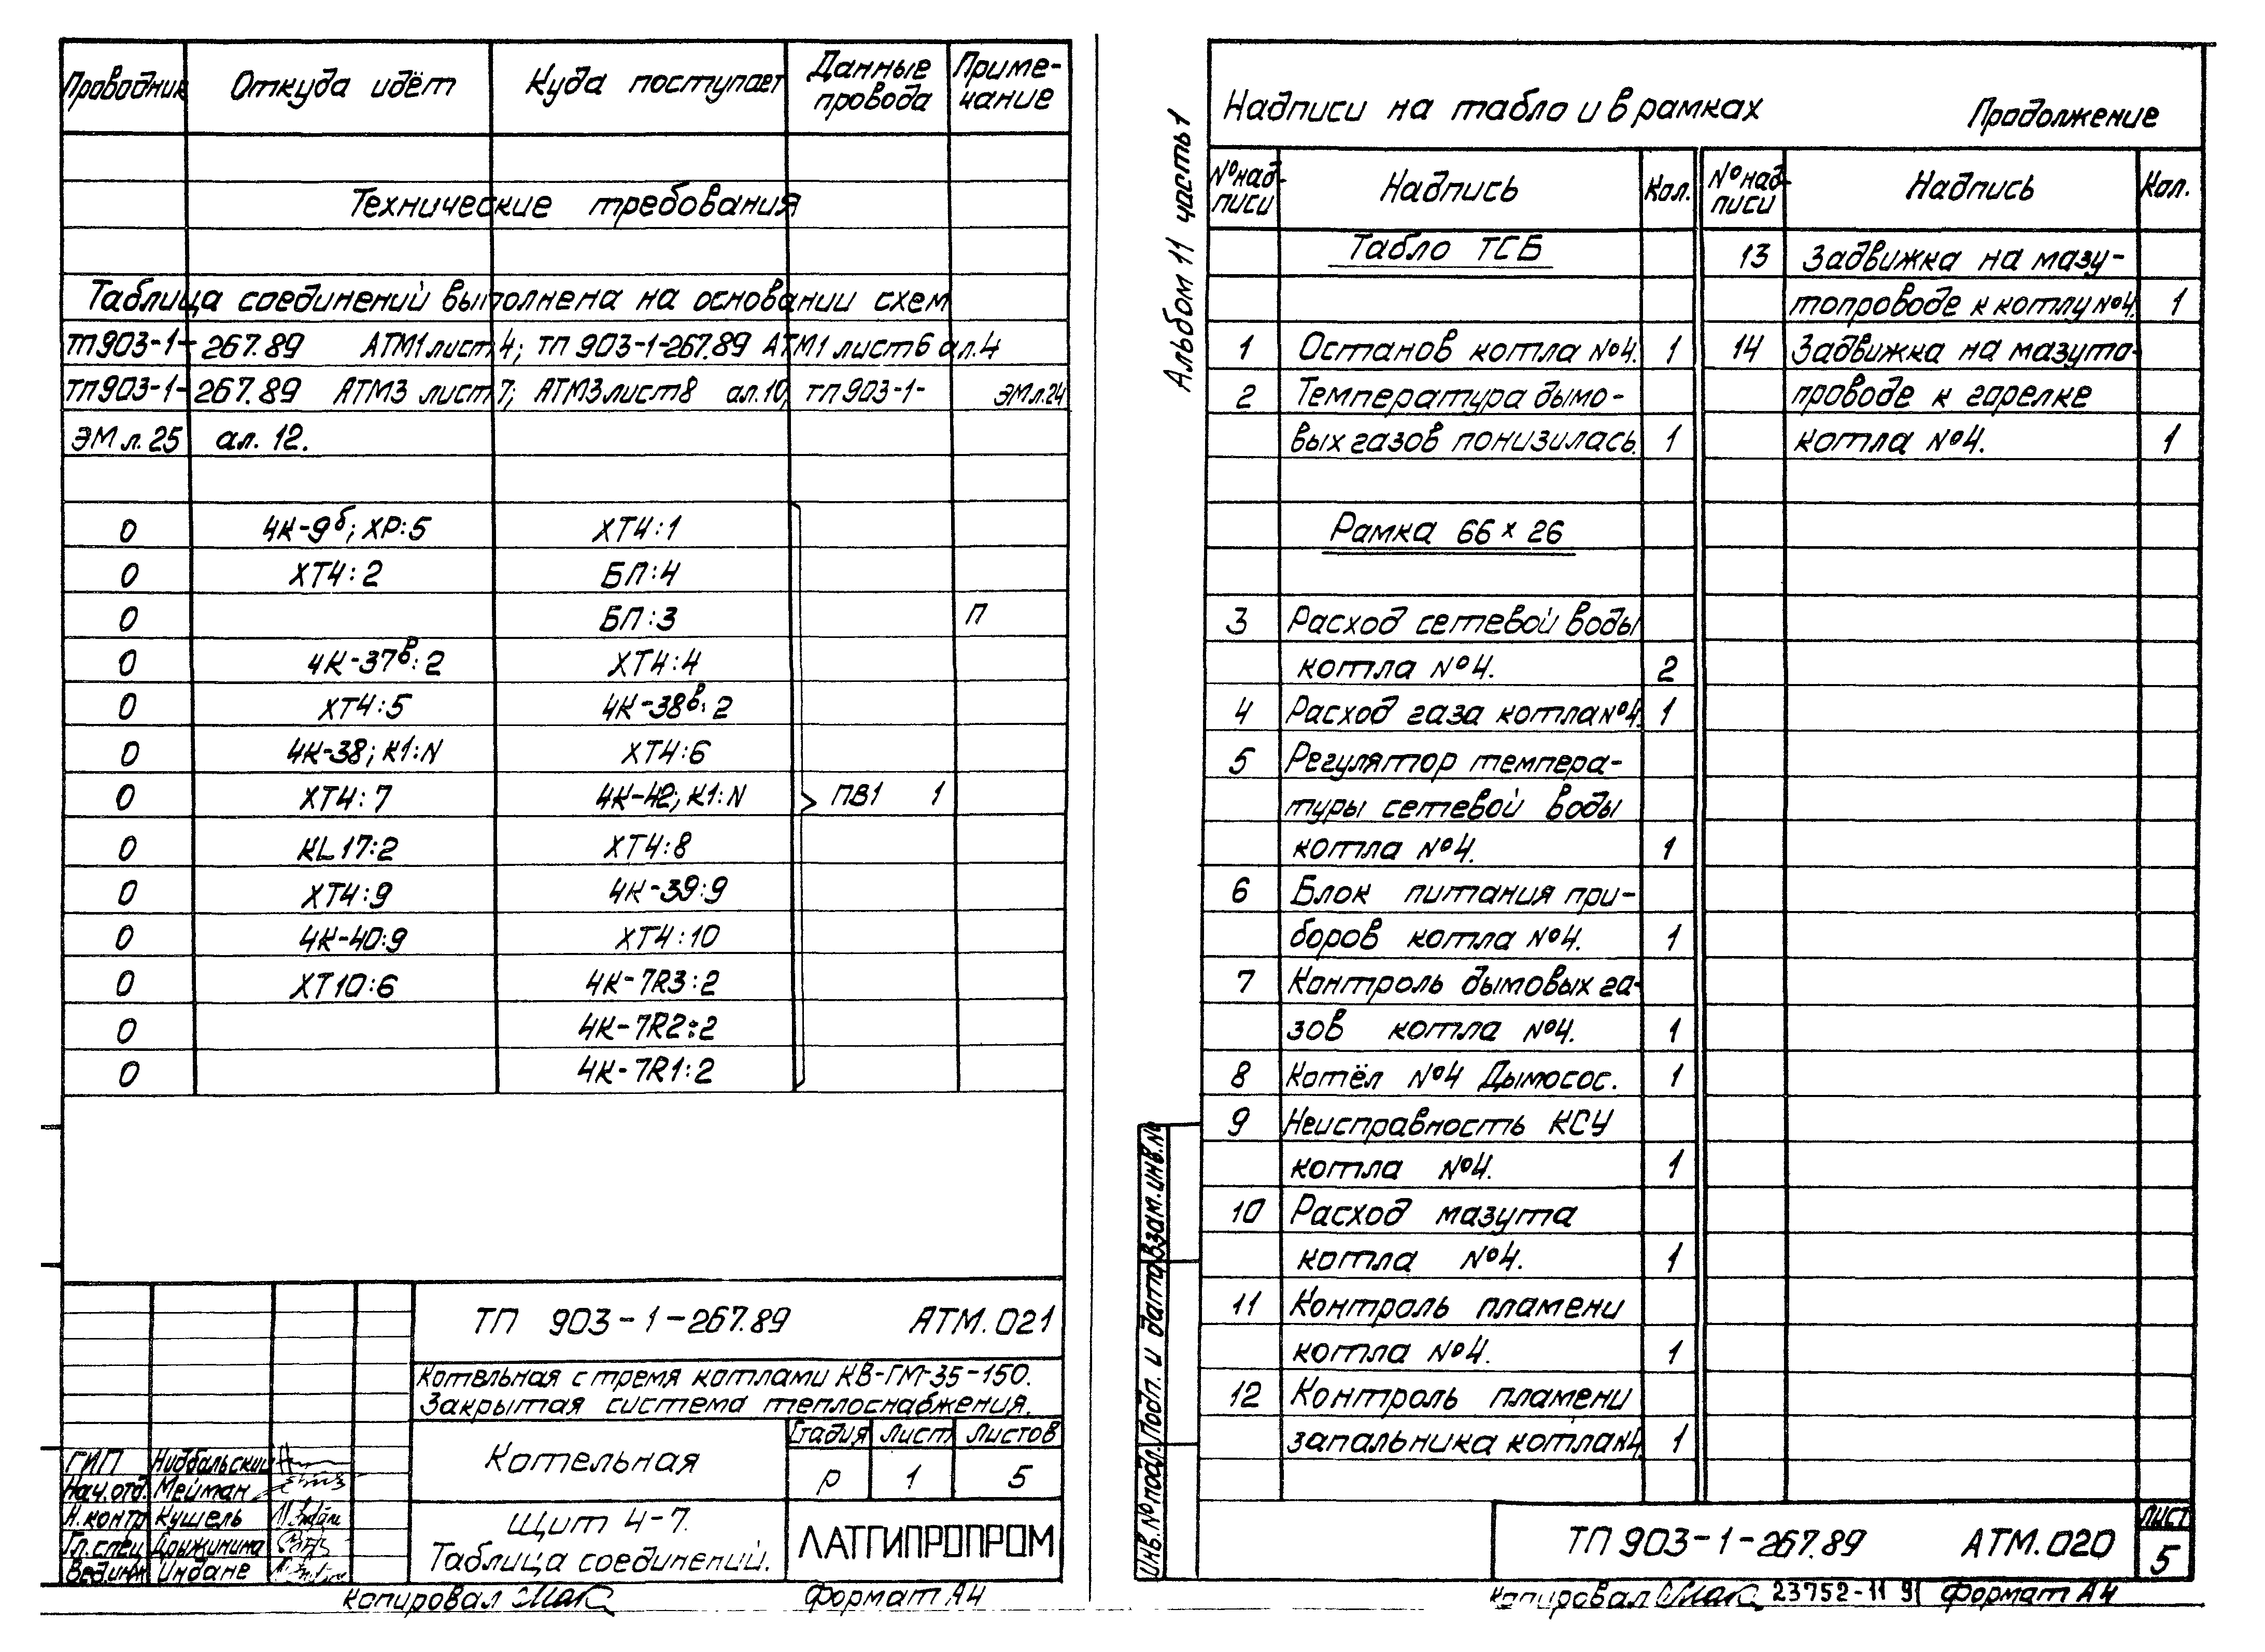 Проводник Откуда идёт Куда поступает Данные провода Приме-чание
Технические требования
Таблица соединений выполнена на основании схем
тп903-1-267.89 АТМ1 лист 4; тп 903-1-267.89 АТМ1 лист 6 ал.4
тп903-1-267.89 АТМ3 лист 7; АТМ3 лист 8 ал.10, тп 903-1- ЭМ л.24
ЭМ л.25 ал. 12.
0 4К-9б; ХР:5 ХТ4:1
0 ХТ4:2 БП:4
0 БП:3 П
0 4К-37в:2 ХТ4:4
0 ХТ4:5 4К-38в:2
0 4К-38; К1:N ХТ4:6
0 ХТ4:7 4К-42; К1:N ПВ1 1
0 KL17:2 ХТ4:8
0 ХТ4:9 4К-39:9
0 4К-40:9 ХТ4:10
0 ХТ10:6 4К-7R3:2
0 4К-7R2:2
0 4К-7R1:2
ТП 903-1-267.89 АТМ.021
Котельная с тремя котлами КВ-ГМ-35-150.
Закрытая система теплоснабжения.
Котельная
Стадия Лист Листов
Р 1 5
Щит 4-7.
Таблица соединений.
ЛАТГИПРОПРОМ
ГИП Нидбальский
Нач.отд. Мейман
Н.контр Кушель
Гл.спец Дрыжинина
Вед.инж Индане
Копировал Формат А4
Альбом 11 часть 1
Надписи на табло и в рамках Продолжение
№ над-писи Надпись Кол. № над-писи Надпись Кол.
Табло ТСБ
1 Останов котла №4. 1
2 Температура дымо-
вых газов понизилась. 1
Рамка 66 х 26
3 Расход сетевой воды
котла №4. 2
4 Расход газа котла №4. 1
5 Регулятор темпера-
туры сетевой воды
котла №4. 1
6 Блок питания при-
боров котла №4. 1
7 Контроль дымовых га-
зов котла №4. 1
8 Котёл №4 Дымосос. 1
9 Неисправность КСУ
котла №4. 1
10 Расход мазута
котла №4. 1
11 Контроль пламени
котла №4. 1
12 Контроль пламени
запальника котла №4. 1
13 Задвижка на мазу-
топроводе к котлу №4. 1
14 Задвижка на мазуто-
проводе к горелке
котла №4. 1
Инв.№ подл. Подп. и дата Взам.инв.№
ТП 903-1-267.89 АТМ.020
Лист
5
Копировал 23752-11 91 Формат А4